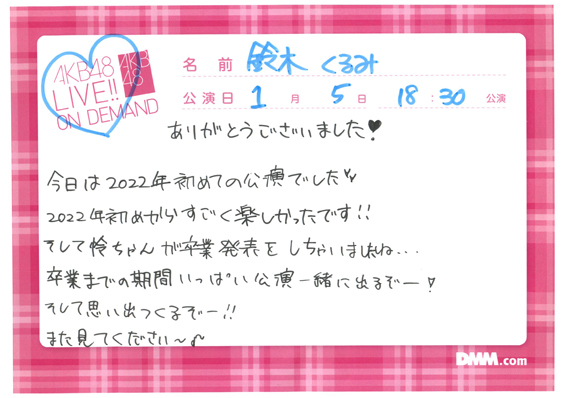 AKB48
LIVE!!
ON DEMAND
AKB
48
名 前 鈴木 くるみ
公演日 1 月 5 日 18:30 公演
ありがとうございました♥
今日は2022年初めての公演でした
2022年初めからすごく楽しかったです!!
そして怜ちゃんが卒業発表をしちゃいましたね...
卒業までの期間いっぱい公演一緒に出るぞー!
そして思い出つくるぞー!!
また見てください〜♪
DMM.com